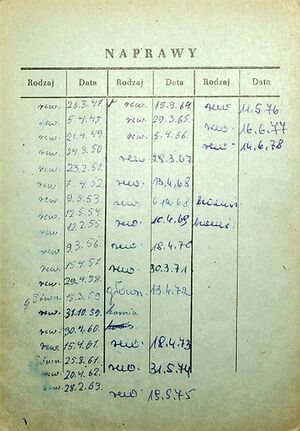 NAPRAWY
Rodzaj Data Rodzaj Data Rodzaj Data
rew. 26.3.47. rew. 18.3.64 rew. 11.5.76
5.4.48. rew. 29.3.65. rew. 16.6.77
rew. 21.4.49. rew. 5.4.66. rew. 14.6.78
rew. 24.3.50 rew 28.3.67
rew. 23.2.51.
rew. 7.4.52. rew. 13.4.68
rew. 9.3.53. rew. 6.12.68
rew. 12.5.54. rew. 10.4.69
rew. 12.2.55.
rew. 9.3.56. rew. 18.4.70
rew. 15.4.57. rew. 30.3.71
rew. 29.4.58. główn. 13.4.72
główn. 15.3.59
rew. 31.10.59. komis.
rew. 30.4.60.
rew. 15.4.61. rew. 18.4.73
główn. 25.8.61.
rew. 20.4.62. rew. 31.5.74
rew. 28.2.63. rew. 19.5.75